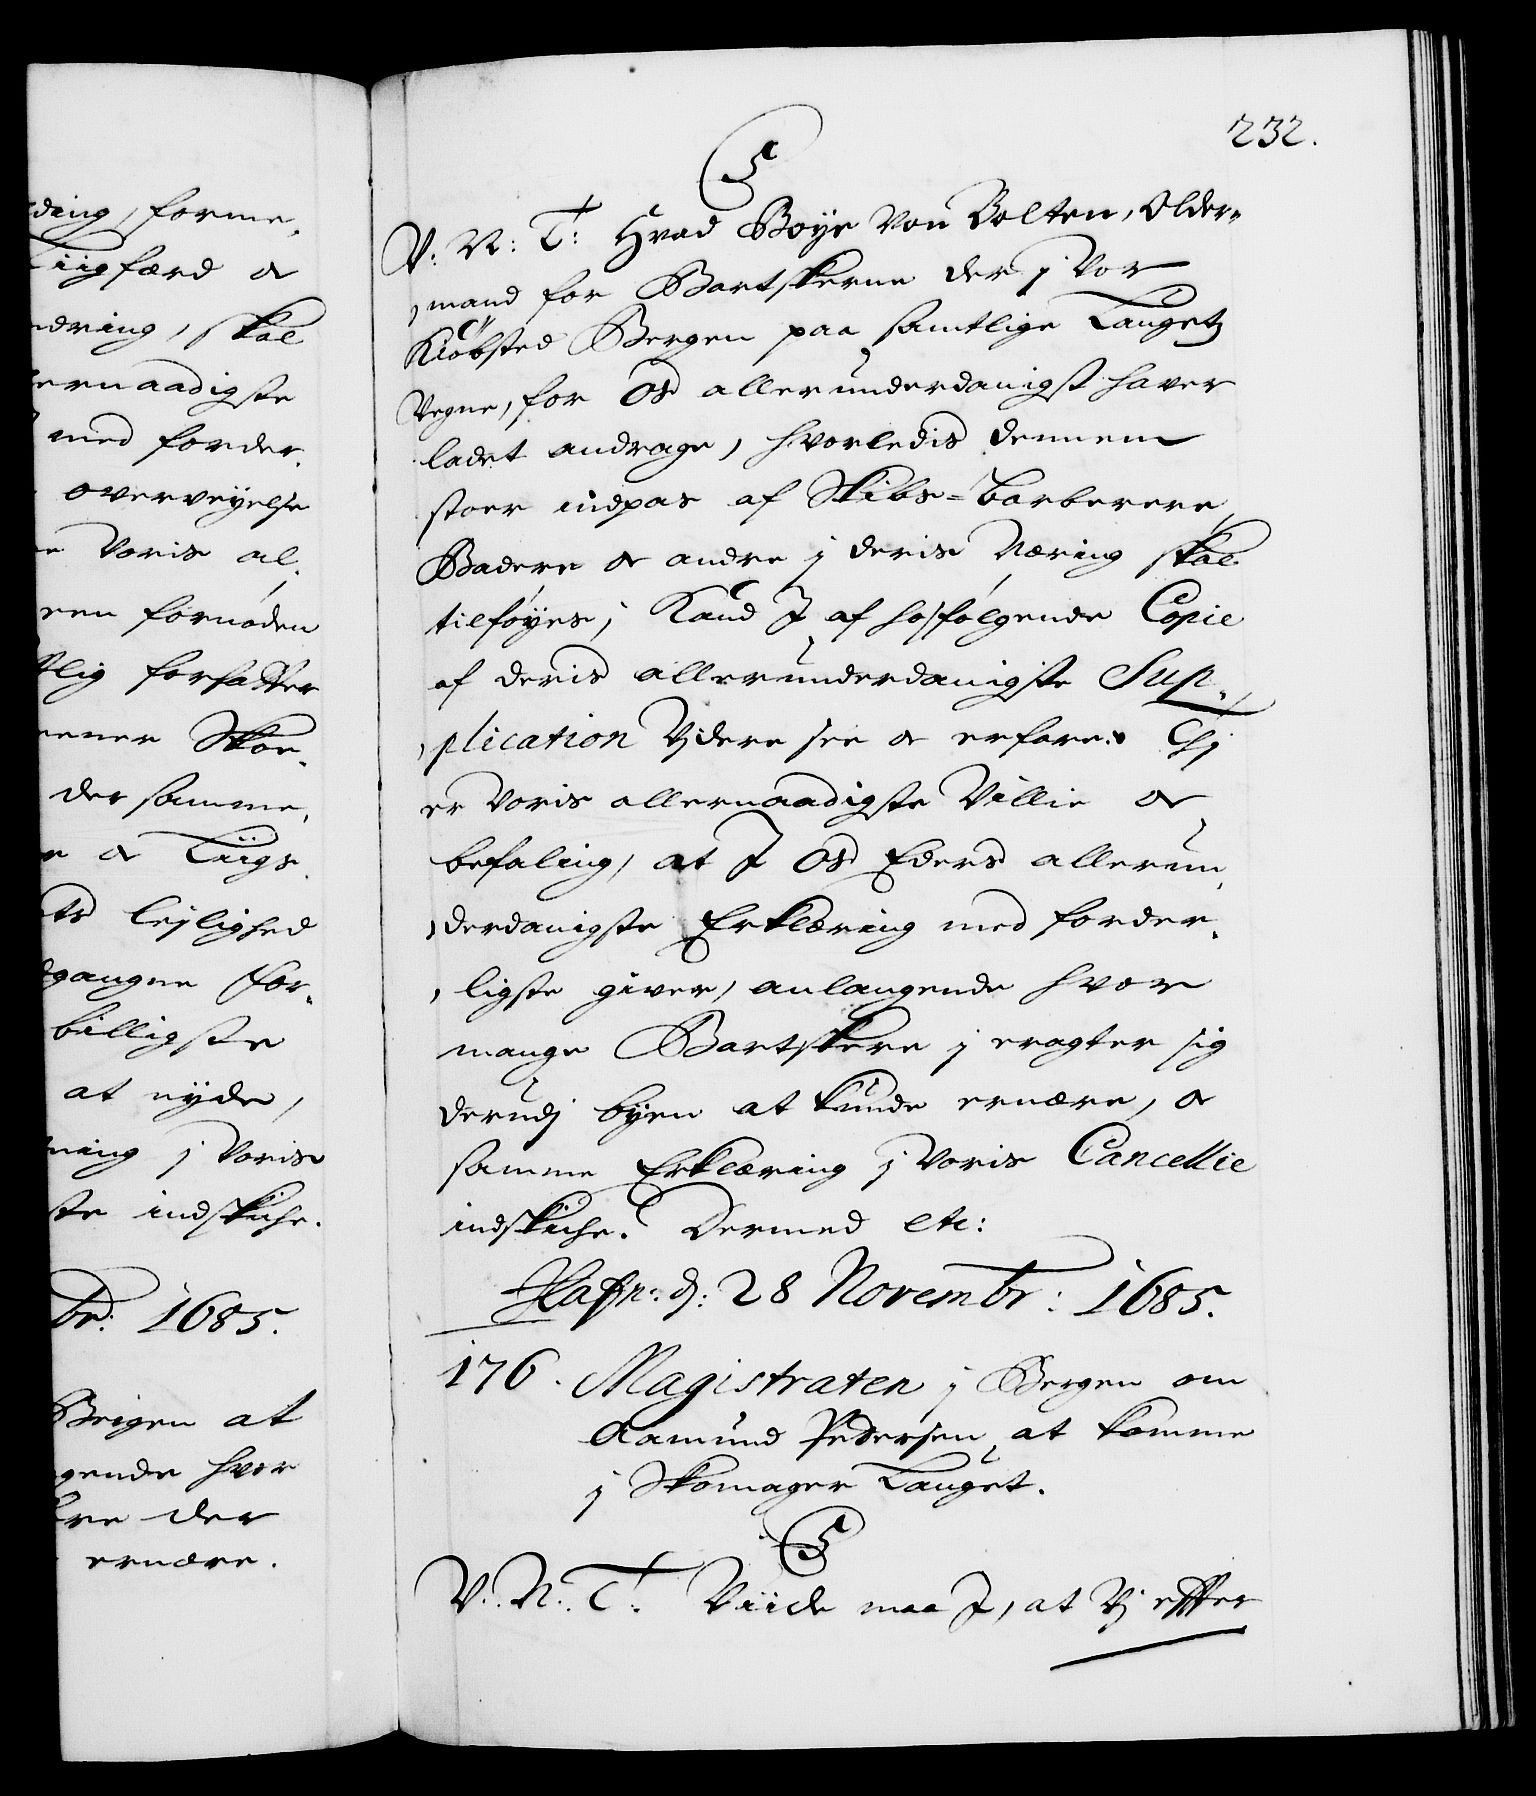 ding, forme¬
Liigfærd oc
ndring, skal
ernaadigste
med forder¬
overveyelse
e Voris al¬
een fornøden
tlig forfatter
eener Skoe¬
der samme,
e oc Liigs¬
ts leylighed
dgangne for¬
billigste
at nyde,
ning j Voris
ste indskiche.
br: 1685.
Bergen at
gende hvor
kre der
ernære.
232.
C5
V: N: T: Hvad Boye Von Bolten, Older¬
mand for Bartskerne der j Vor
Kiöbsted Bergen paa samtlige Laugetz
Vegne, for Os allerunderdanigst haver
ladet andrage, hvorledis dennem
stoer indpas af Skibs-Barberere,
Badere oc andre j deris Næring skal
tilföyes, Kand I af hosfølgende Copie
af deris allerunderdanigste Sup¬
plication Vjdere see oc erfare. Thj
er Voris allernaadigste Villie oc
befaling, at I Os Eders allerun¬
derdanigste Erklæring med forder¬
ligste giver, anlangende hvor
mange Bartskere j eragter sig
derudj byen at kunde ernære, oc
samme Erklæring j Voris Cancellie
indskiche. Dermed etc:
Hafn: d: 28 Novembr: 1685.
176. Magistraten j Bergen om
Aamund Pedersen at komme
j Skomager Lauget.
C5
V: N: T: Viide maa I, at Vj effter